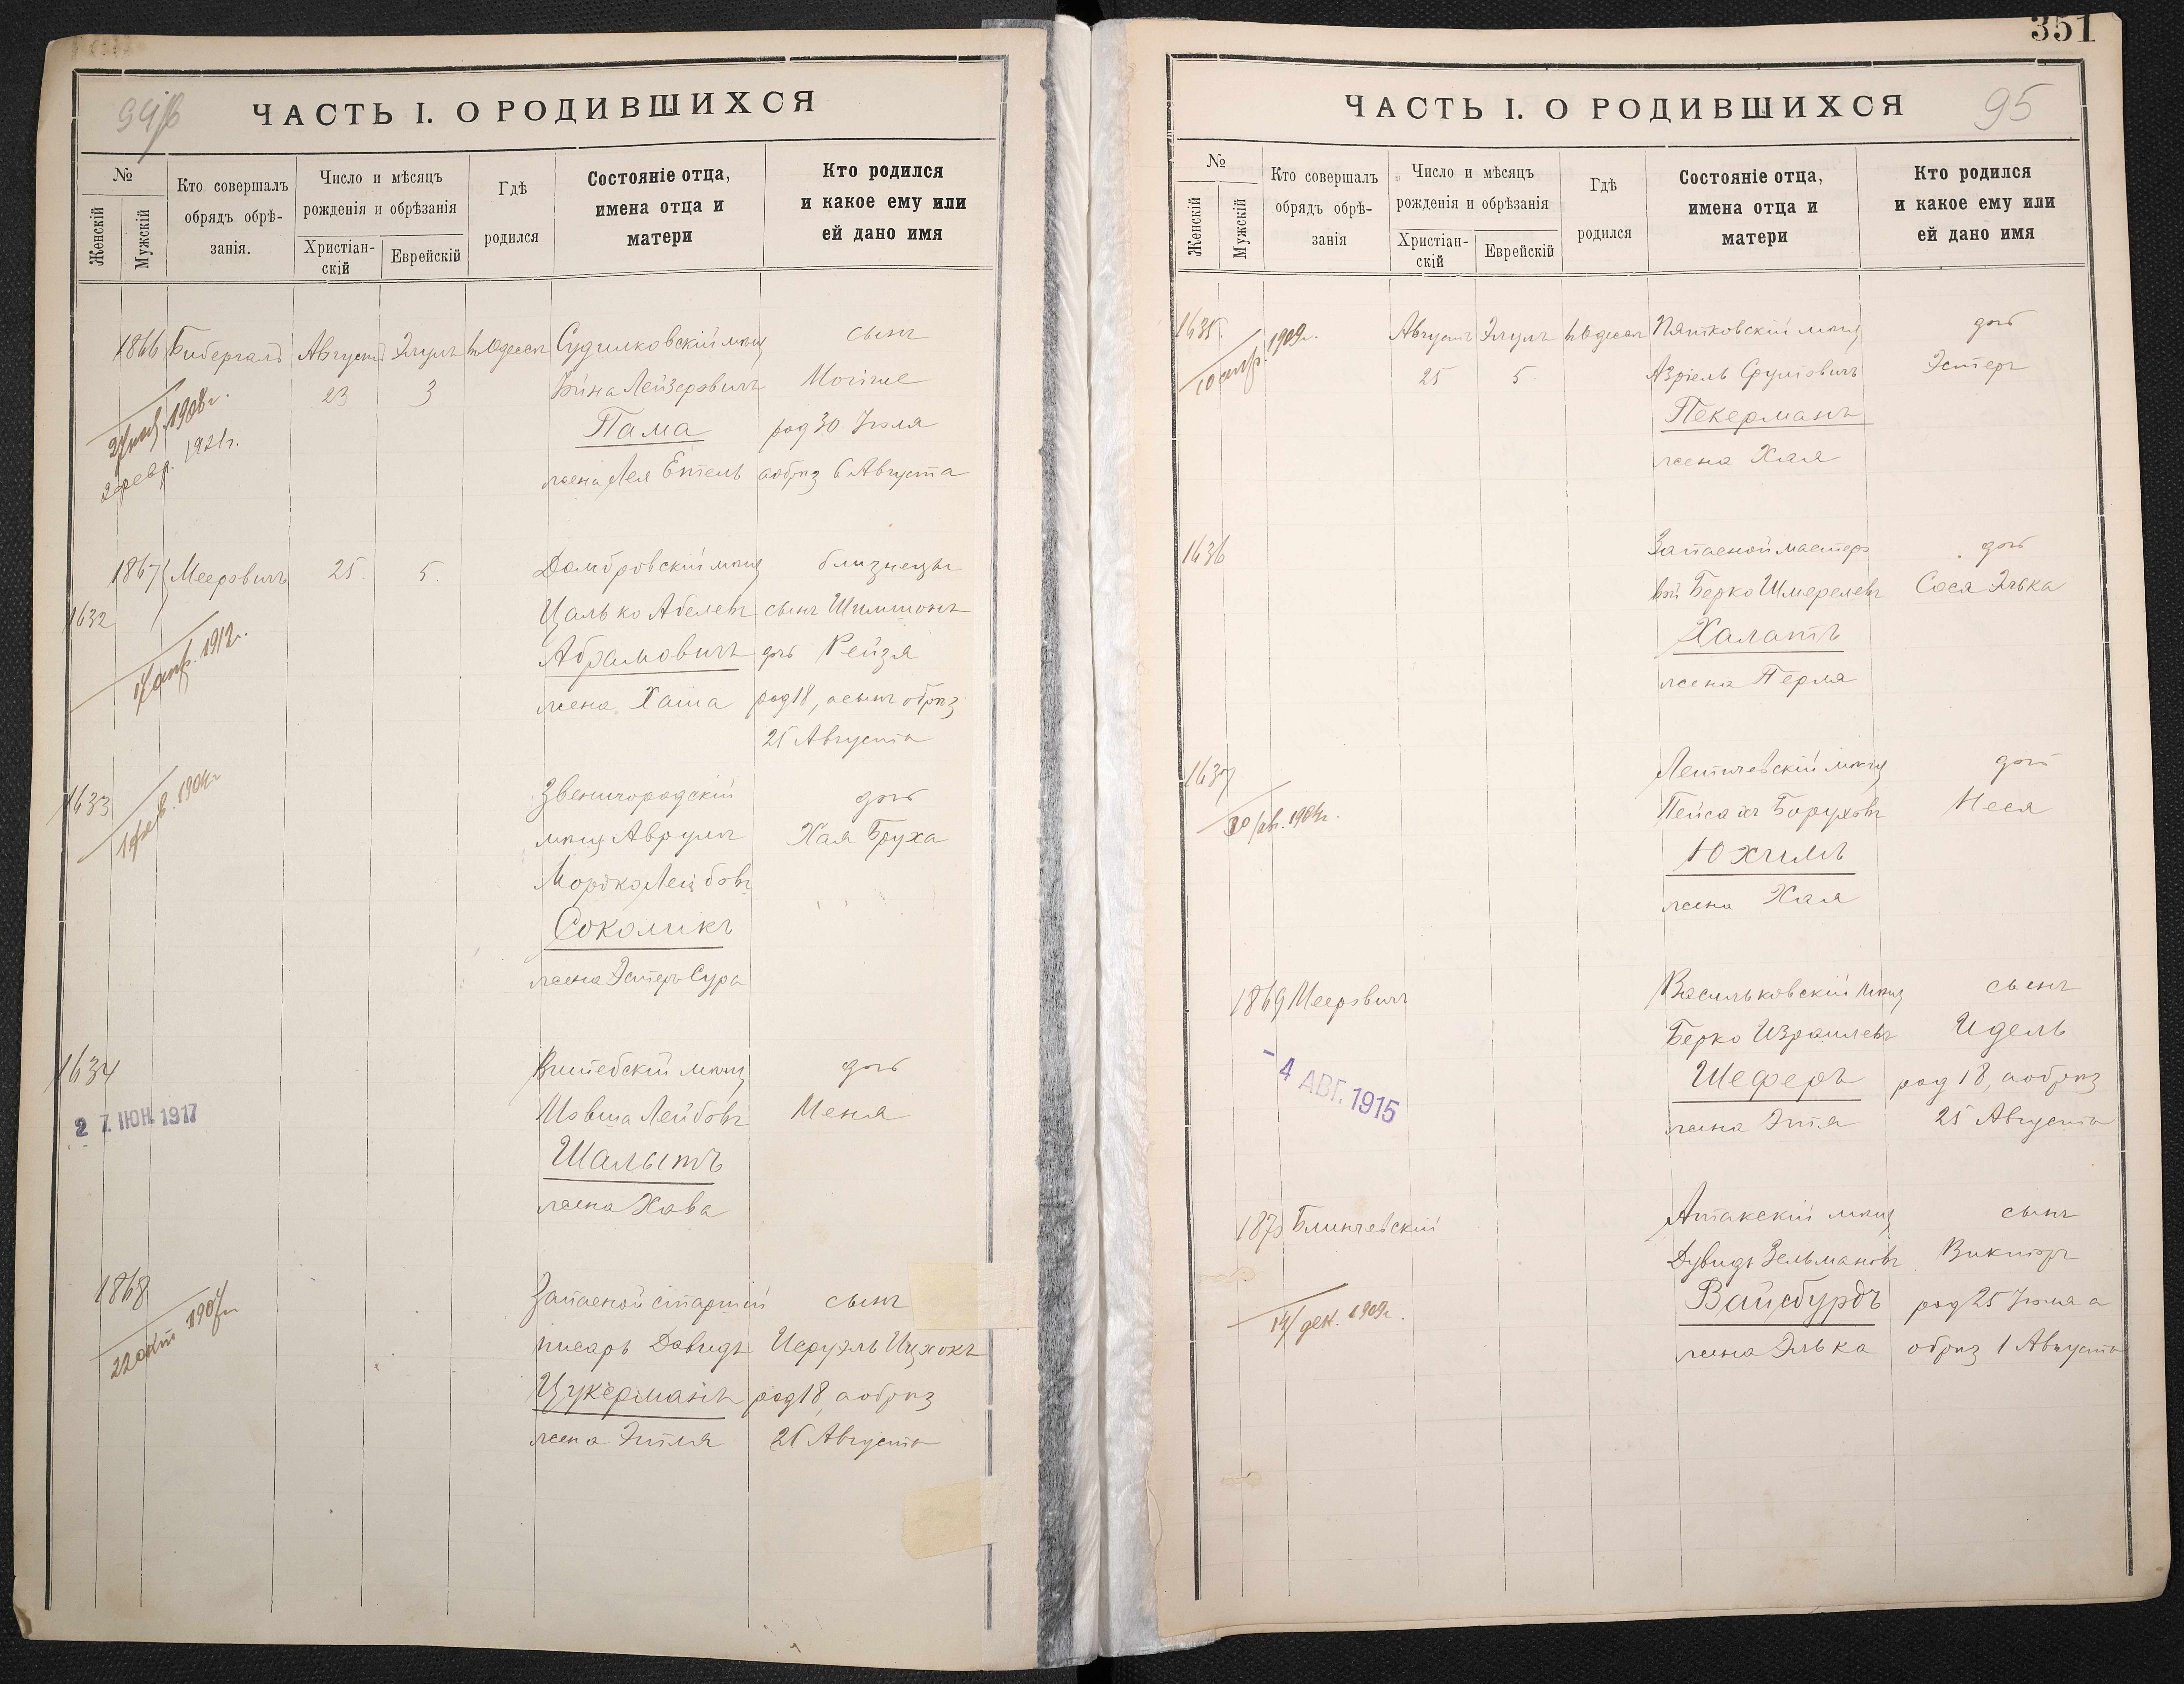 94/б
ЧАСТЬ I. О РОДИВШИХСЯ
№
Женскій
Мужскій
Кто совершалъ
обрядъ обрѣ-
занія.
Число и мѣсяцъ
рожденія и обрѣзанія
Христіан-
скій
Еврейскій
Гдѣ
родился
Состояніе отца,
имена отца и
матери
Кто родился
и какое ему или
ей дано имя
1866 Бибергалъ Августъ Элулъ въ Одессѣ Судилковскій мѣщ сынъ
23 3 Лейзеровичъ
Пама род 30 Іюля
жена Лея Ентель а обрѣз 6 Августа
1908 г.
2 февр. 1921 г.
1867 Мееровичъ 25 5. Домбровскій мѣщ близнецы
1632
Цалько Абелевъ сынъ Шимшонъ
Абрамовичъ дочь Рейзя
жена Хаша род 18, а сынъ обрѣз
25 Августа
1912 г.
1633
Звенигородскій дочь
мѣщ Аврумъ Хая Бруха
Мордко Лейбовъ
Соколикъ
жена Эстеръ Сура
1634
Витебскій мѣщ дочь
27. ІЮН. 1917
Мовша Лейбовъ Меня
Шалытъ
жена Хава
1868
Запасной старшій сынъ
писарь Давидъ Иеруэль Ицхокъ
Цукерманъ род 18, а обрѣз
жена Этля 25 Августа
22 окт 1907 г.
351
95
ЧАСТЬ I. О РОДИВШИХСЯ
№
Женскій
Мужскій
Кто совершалъ
обрядъ обрѣ-
занія
Число и мѣсяцъ
рожденія и обрѣзанія
Христіан-
скій
Еврейскій
Гдѣ
родился
Состояніе отца,
имена отца и
матери
Кто родился
и какое ему или
ей дано имя
1635. Августъ Элулъ въ Одессѣ Пятковскій мѣщ дочь
1909 г.
25 5. Азріель Сруловичъ Эстеръ
Пекерманъ
жена Хая
1636
Запасной мастеро дочь
вой Берко Шмерелевъ Сося Элька
Халатъ
жена Перля
1637
Летичевскій мѣщ дочь
Пейсахъ Боруховъ Неся
Юхимъ
жена Хая
1869 Мееровичъ
Васильковскій мѣщ сынъ
Берко Израилевъ Идель
- 4 АВГ. 1915
Шеферъ род 18, а обрѣз
жена Этя 25 Августа
1870 Блинчевскій
Атакскій мѣщ сынъ
Дувидъ Зельмановъ Викторъ
Вайсбурдъ род 25 Іюля а
жена Элька обрѣз 1 Августа
14/дек. 1909 г.